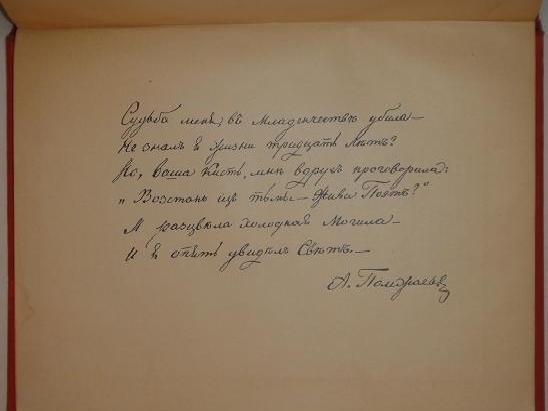 Судьба меня въ младенчествѣ убила —
Не зналъ я жизни тридцать лѣтъ?
Но, ваша кисть, мнѣ вдругъ проговорила:
"Возстань изъ тьмы — живи Поэтъ?"
И разцвѣла холодная Могила —
И я опять увидѣлъ Свѣтъ. —
А.